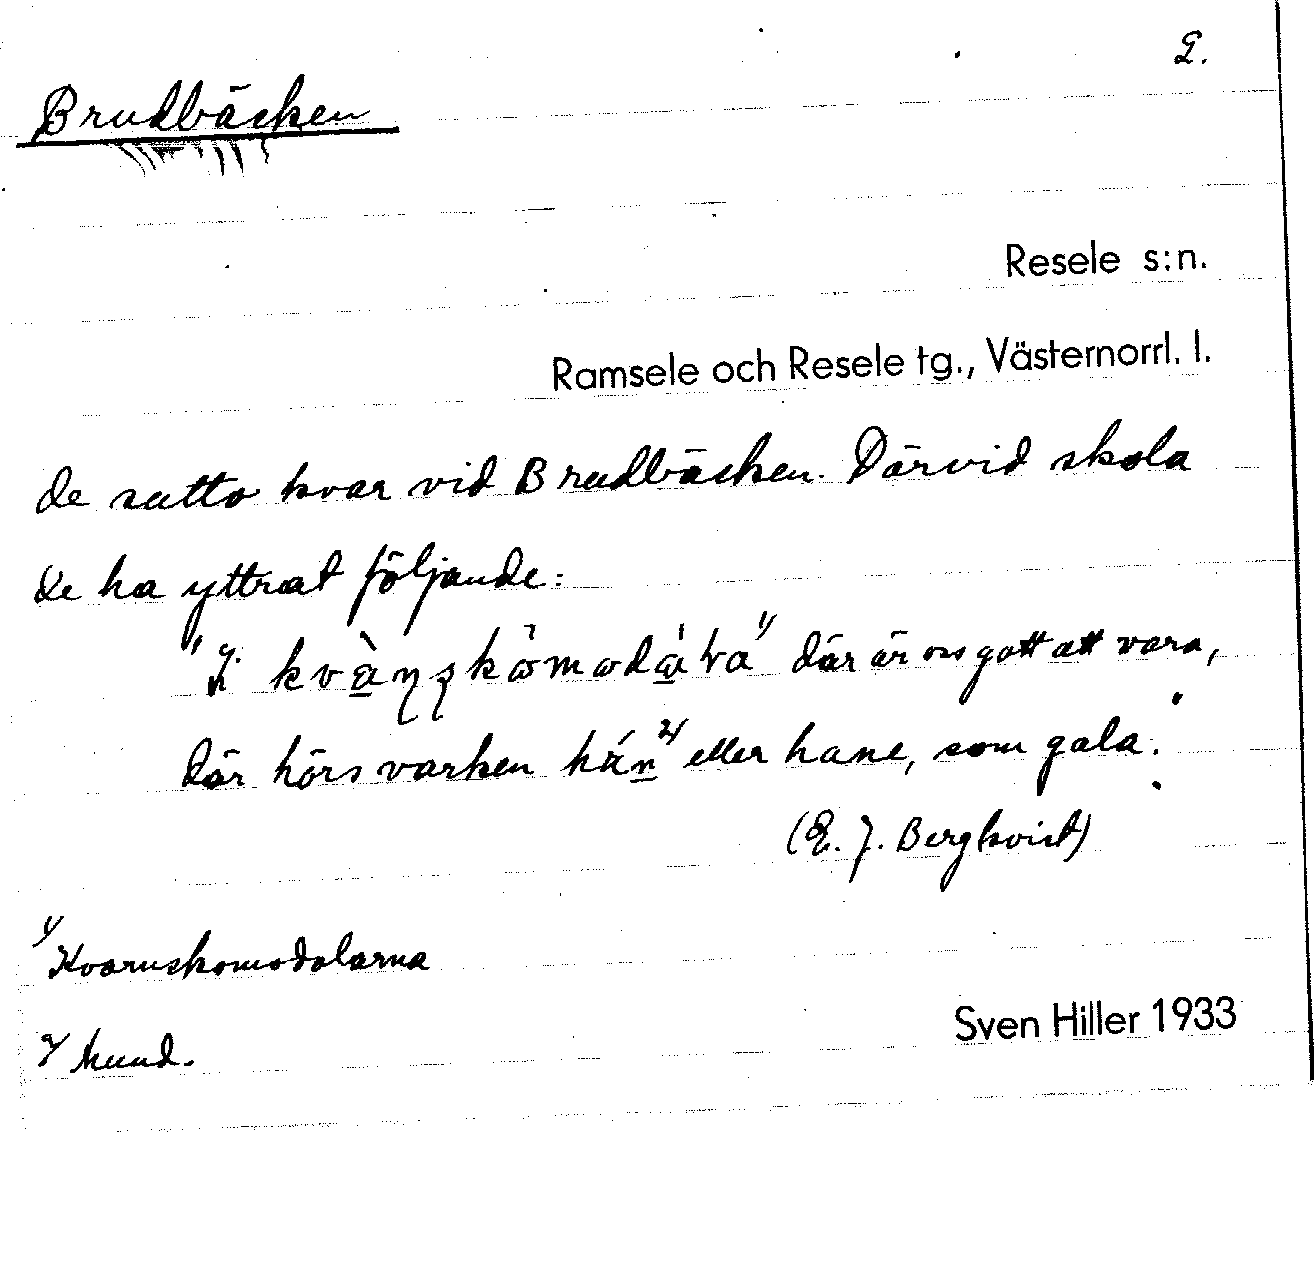 2.
Brudbäcken
Resele s:n.
Ramsele och Resele tg., Västernorrl. l.
de sutto kvar vid Brudbäcken. Därvid skola
de ha yttrat följande:
där är oss gott att vara,
där hörs varken hún 2) eller hane, som gala."
(E. J. Bergkvist)
1) Kvarnskomodalarna
2) hund.
Sven Hiller 1933